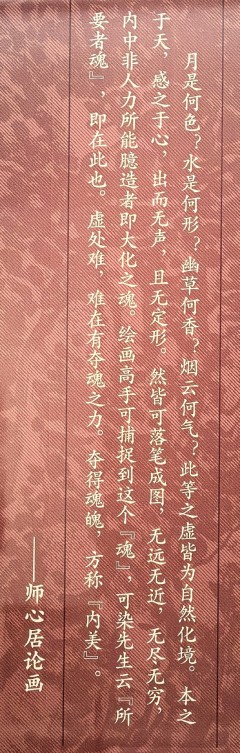 月是何色？水是何形？幽草何香？烟云何气？此等之虚皆为自然化境。本之
于天，感之于心，出而无声，且无定形。然皆可落笔成图，无远无近，无尽无穷，
内中非人力所能臆造者即大化之魂。绘画高手可捕捉到这个『魂』，可染先生云『所
要者魂』，即在此也。虚处难，难在有夺魂之力。夺得魂魄，方称『内美』。
——师心居论画